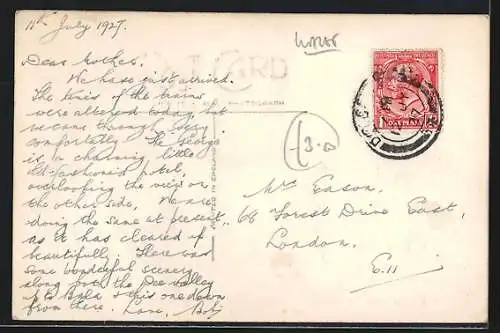 11th July 1927.
Dear Mother,
We have just arrived.
The times of the trains
were altered today but
we came through very
comfortably. The George
is a charming little
old-fashioned hotel,
overlooking the river on
the other side, We are
doing the same at present,
as it has cleared up
beautifully. There was
some wonderful scenery
along both the Dee valley
up to Bala & this one down
from there. Love, Bob
CARD
PRINTED IN ENGLAND
13.0
Mrs Eason,
68 Forest Drive East,
London.
E.11